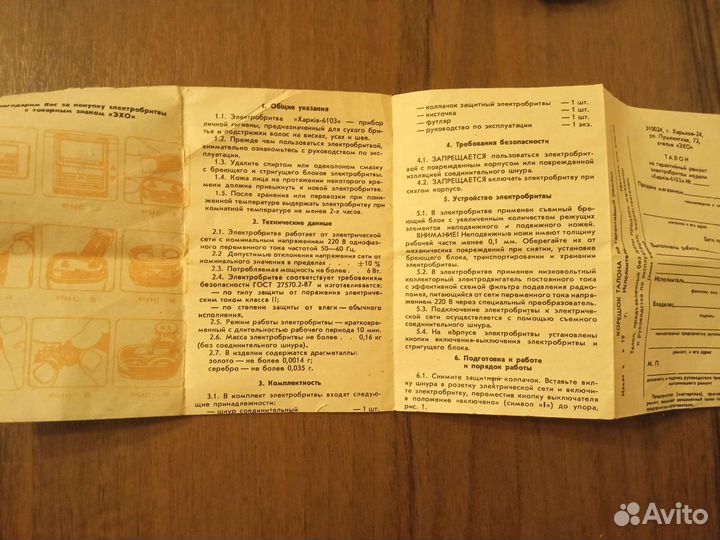 Вас за покупку электробритвы
с товарным знаком «ЭХО»
1. Общие указания
1.1. Электробритва «Харків-6103» — прибор
личной гигиены, предназначенный для сухого бри-
тья и подстрижки волос на висках, усах и шее.
1.2. Прежде чем пользоваться электробритвой,
внимательно ознакомьтесь с руководством по экс-
плуатации.
1.3. Удалите спиртом или одеколоном смазку
с бреющего и стригущего блоков электробритвы.
1.4. Кожа лица на протяжении некоторого вре-
мени должна привыкнуть к новой электробритве.
1.5. После хранения или перевозки при пони-
женной температуре выдержать электробритву при
комнатной температуре не менее 2-х часов.
2. Технические данные
2.1. Электробритва работает от электрической
сети с номинальным напряжением 220 В однофаз-
ного переменного тока частотой 50—60 Гц.
2.2 Допустимые отклонения напряжения сети от
номинального значения в пределах . . . ±10 %
2.3. Потребляемая мощность не более . . 6 Вт.
2.4. Электробритва соответствует требованиям
безопасности ГОСТ 27570.2-87 и изготавливается:
— по типу защиты от поражения электриче-
ским током класса II;
— по степени защиты от влаги — обычного
исполнения.
2.5. Режим работы электробритвы — кратковре-
менный с длительностью рабочего периода 10 мин.
2.6. Масса электробритвы не более . . 0,16 кг
(без соединительного шнура).
2.7. В изделии содержатся драгметаллы:
золото — не более 0,0014 г;
серебро — не более 0,035 г.
3. Комплектность
3.1. В комплект электробритвы входят следую-
щие принадлежности:
— шнур соединительный — 1 шт.
— колпачок защитный электробритвы — 1 шт.
— кисточка — 1 шт.
— футляр — 1 шт.
— руководство по эксплуатации — 1 экз.
4. Требования безопасности
4.1. ЗАПРЕЩАЕТСЯ пользоваться электробрит-
вой с поврежденным корпусом или поврежденной
изоляцией соединительного шнура.
4.2. ЗАПРЕЩАЕТСЯ включать электробритву при
снятом корпусе.
5. Устройство электробритвы
5.1. В электробритве применен съемный бре-
ющий блок с увеличенным количеством режущих
элементов неподвижного и подвижного ножей.
ВНИМАНИЕ! Неподвижные ножи имеют толщину
рабочей части менее 0,1 мм. Оберегайте их от
механических повреждений при снятии, установке
бреющего блока, транспортировании и хранении
электробритвы.
5.2. В электробритве применен низковольтный
коллекторный электродвигатель постоянного тока
с эффективной схемой фильтра подавления радио-
помех, питающийся от сети переменного тока напря-
жением 220 В через специальный преобразователь.
5.3. Подключение электробритвы к электриче-
ской сети осуществляется с помощью съемного
соединительного шнура.
5.4. На корпусе электробритвы установлены
кнопки включения-выключения электробритвы и
стригущего блока.
6. Подготовка к работе
и порядок работы
6.1. Снимите защитный колпачок. Вставьте вил-
ку шнура в розетку электрической сети и включите
электробритву, переместив кнопку выключателя
в положение «включено» (символ «I») до упора,
рис. 1.
310024, г. Харьков-24,
ул. Пушкинская, 72,
ателье «ЭХО»
ТАЛОН
на гарантийный ремонт
электробритвы модели
Продана магазином
Выполнены работы
Исполнитель
Владелец
М. П.
КОРЕШОК ТАЛОНА
Avito